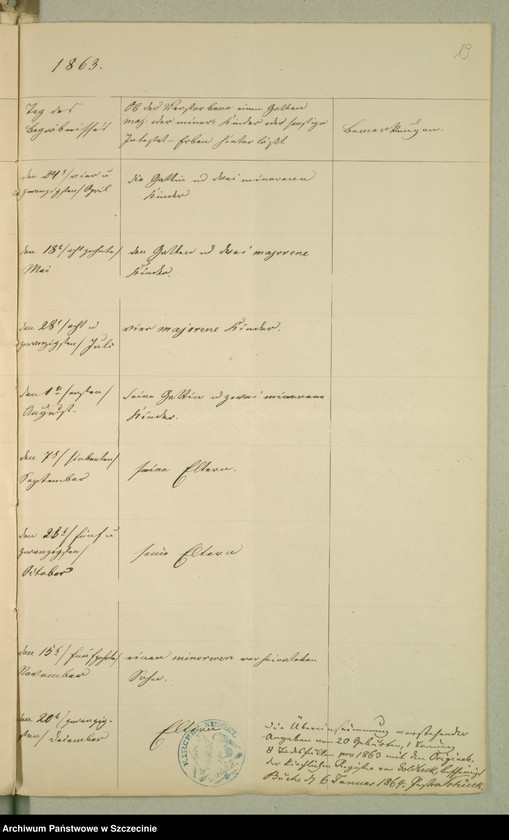 1863.
19
Tag des Begräbnisses
Ob der Verstorbene einen Gatten
maj. oder minor. Kinder oder sonstige
Intestat-Erben hinterläßt
Bemerkungen.
den 24t/vier u
zwanzigsten/ April
die Gattin u drei minorenne
Kinder
den 18t/achtzehnten/
Mai
den Gatten u drei majorene
Kinder.
den 28t/acht u
zwanzigsten/ Juli
vier majorene Kinder.
den 1t/ersten/
August.
seine Gattin u zwei minorenne
Kinder.
den 7t/siebenten/
September
seine Eltern.
den 25t/fünf u
zwanzigsten/
October
seine Eltern
den 15t/fünfzehnten/
November
einen minorenen verheirateten
Sohn.
den 20t/zwanzig-
sten/ Dezember
Eltern
KIRCHEN SIEGEL
Die Übereinstimmung vorstehender
Angaben von 20 Geburten, 1 Trauung
8 Todesfällen pro 1863 mit dem Original
der kirchlichen Register von bescheinigt
Büche d. 6 Januar 1864.
Archiwum Państwowe w Szczecinie